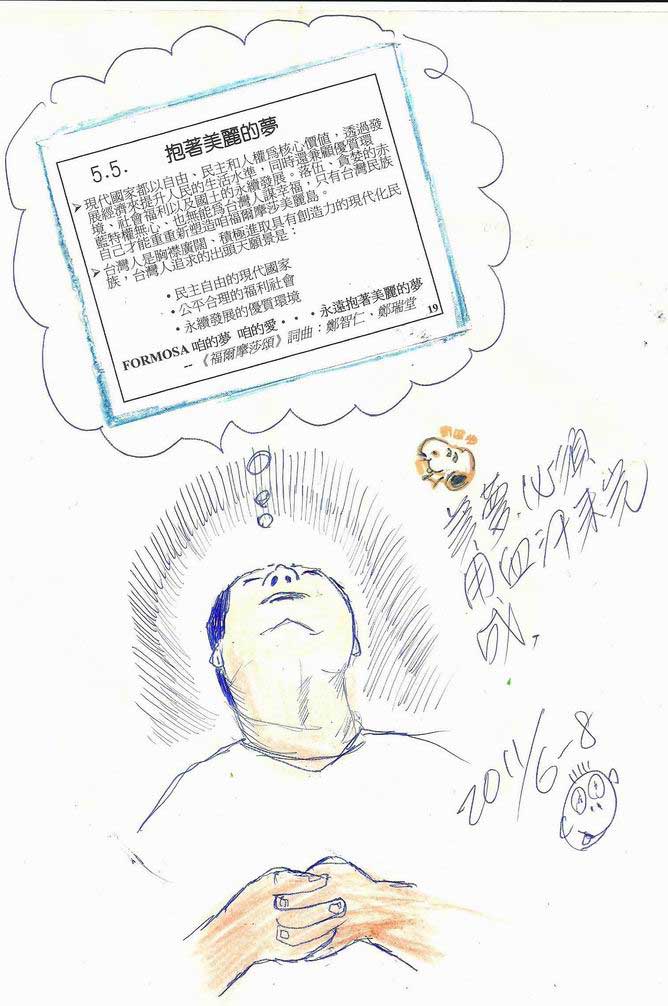 5.5. 抱著美麗的夢
➤現代國家都以自由、民主和人權為核心價值，透過發
展經濟來提升人民的生活水準，同時還兼顧優質環
境、社會福利以及國土的永續發展。落伍、貪婪的赤
藍特權無心、也無能為台灣人謀幸福，只有台灣民族
自己才能重重新塑造咱福爾摩莎美麗島。
➤台灣人是胸懷廣闊、積極進取具有創造力的現代化民
族，台灣人追求的出頭天願景是：
•民主自由的現代國家
•公平合理的福利社會
•永續發展的優質環境
FORMOSA 咱的夢 咱的愛・・・永遠抱著美麗的夢
--《福爾摩莎頌》詞曲：鄭智仁、鄭瑞堂
19
美夢，必須
用血汗來完
成，
2011/6-8